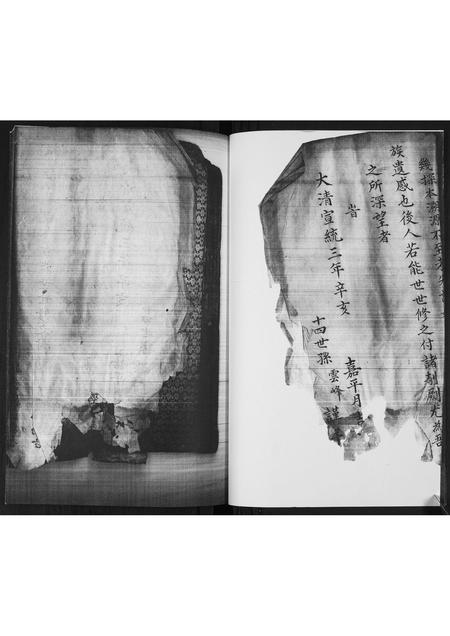 幾探本溯源不
族遺憾也後人若能世世修之付諸剞劂尤為吾
之所深望者
旹
大清宣統三年辛亥
嘉平月
十四世孫雲峰謹